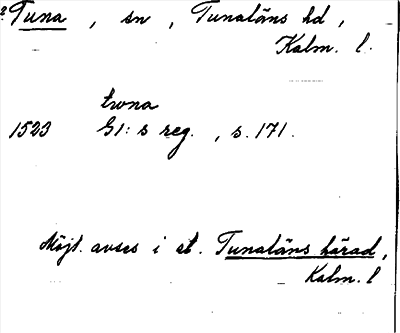 2 Tuna, sn, Tunaläns hd,
Kalm. l.
twna
1523 G1:s reg., s. 171.
Möjl. avses i st. Tunaläns härad,
Kalm. l